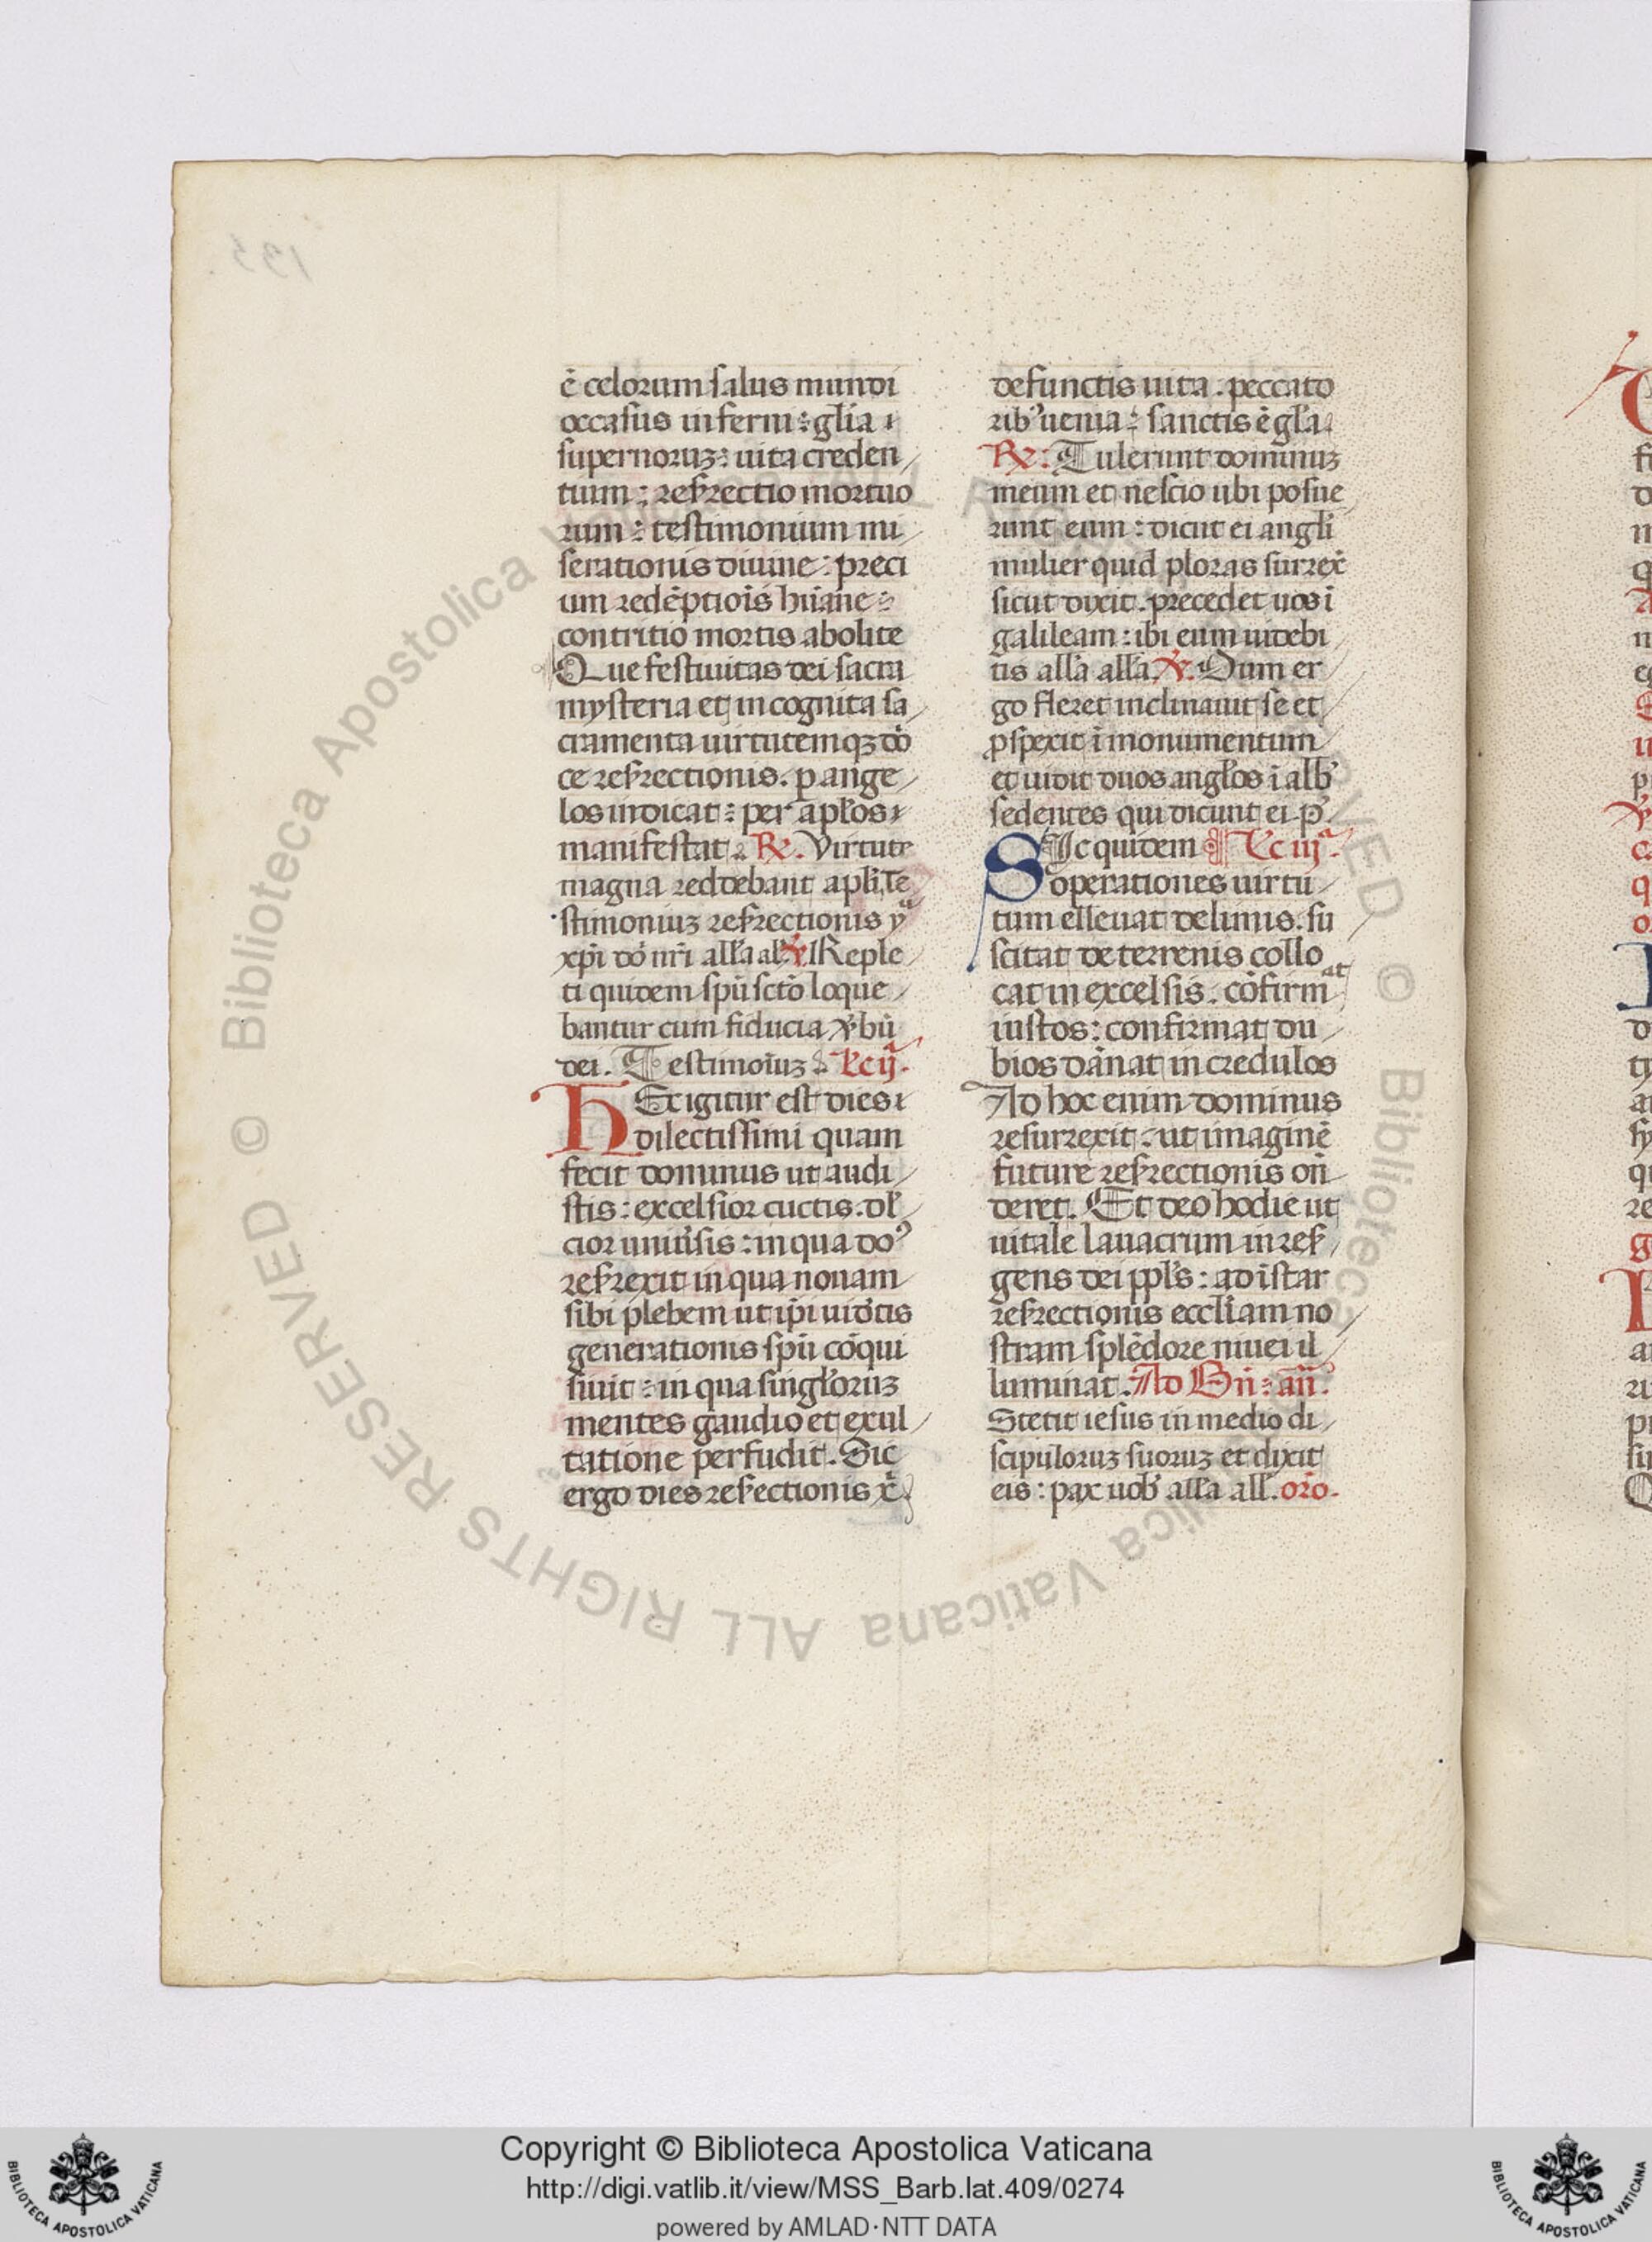 ē celorum salus mundi
occasus inferni : glīa
supernorūz : uita creden
tium : resr̄rectio mortuo
rum : testimonium mi
serationis diuine : preci
um redēptiōis hūane :
contritio mortis abolite
Que festiuitas dei sacra
mysteria et incognita sa
cramenta uirtutemqꝫ dō
ce resr̄rectionis. ꝑ ange
los indicat : per ap̄los
manifestat. ℟. Virtute
magna reddebant apl̄i te
stimoniuꝫ resr̄rectionis yͣ
xp̄i dō nr̄i all̄a al̄. ℣ Reple
ti quidem spū sctō loque
bantur cum fiducia ꝟbū
dei. Testimoīuꝫ Łc ijͣ.
HEc igitur est dies
dilectissimi quam
fecit dominus ut audi
stis : excelsior cuctis. dl̄
cior uniūsis : in qua do᾽
resr̄rexit in qua nouam
sibi plebem ut ip̄i uidētis
generationis spū cōqui
siuit : in qua singl̄oruꝫ
mentes gaudio et exul
tatione perfudit. Sic
ergo dies resectionis x̄
defunctis uita. peccato
rib᾽ uenia : sanctis ē gl̄a
℟ : Tulerunt dominuꝫ
meum et nescio ubi posue
runt eum : dicūt ei angl̄i
mulier quid ploras surrex̄
sicut dixit. precedet uos ī
galileam : ibi eum uidebi
tis all̄a all̄a. ℣. Dum er
go fleret inclinauit se et
ꝓspexit ī monumentum
et uidit duos angl̄os ī alb᾽
sedentes qui dicunt ei. p̄.
SIc quidem Łc iijͣ.
operationes uirtu
tum elleuat de limis. su
scitat de terrenis collo
cat in excelsis. cōfirmat
iustos : confirmat du
bios dānat incredulos
Ad hoc enim dominus
resurrexit : ut imaginē
future resr̄rectionis on̄
deret. Et deo hodie ut
uitale lauacrum in res̄
gens dei ppl̄s : ad īstar
resr̄rectionis eccl̄iam no
stram splēdore niuei il
luminat. Ad Bn̄ : an̄.
Stetit iesus in medio di
scipuloruꝫ suoruꝫ et dixit
eis : pax uob᾽ all̄a all̄. orō.
Copyright © Biblioteca Apostolica Vaticana
http://digi.vatlib.it/view/MSS_Barb.lat.409/0274
powered by AMLAD·NTT DATA